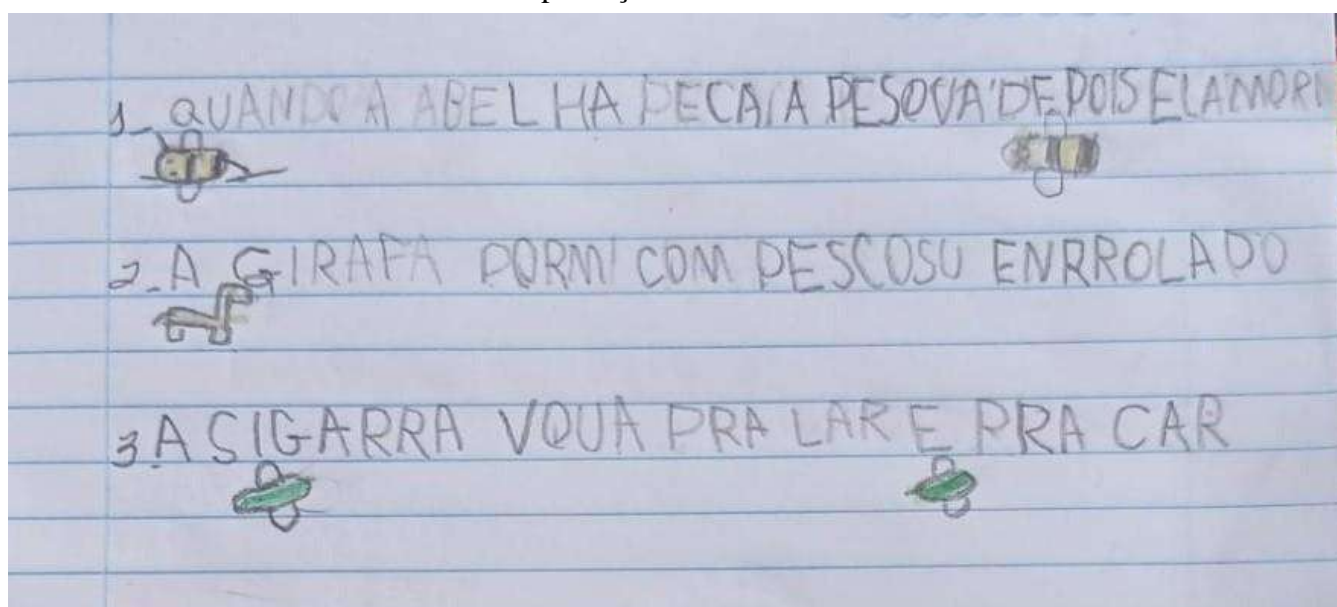 1_ QUANDO A ABELHA PECA A PESOUA DEPOIS ELA MORI
2_A GIRAFA DORMI COM PESCOSU ENRROLADO
3.A SIGARRA VOUA PRA LAR E PRA CAR